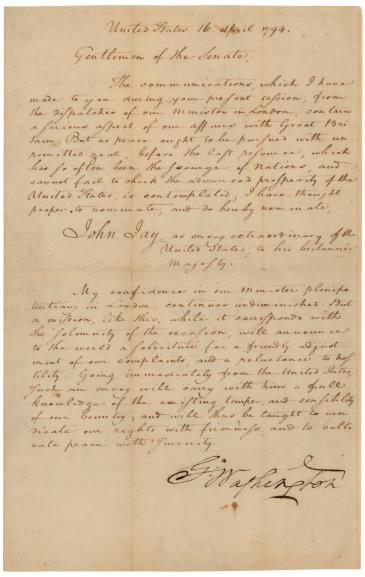 United States 16 April 1794.
Gentlemen of the Senate,
The communications, which I have
made to you during your present session, from
the dispatches of our Minister in London, contain
a serious aspect of our affairs with Great Bri
tain. But as peace ought to be pursued with un
remitted zeal, before the last resource, which
has so often been the scourge of nations, and
cannot fail to check the advanced prosperity of the
United States, is contemplated, I have thought
proper to nominate, and do hereby nominate,
John Jay, as envoy extraordinary of the
United States, to his Britannic
Majesty.
My confidence in our Minister plenipo
tentiary in London continues undiminished. But
a mission, like this, while it corresponds with
the solemnity of the occasion, will announce
to the world a solicitude for a friendly adjust
ment of our complaints, and a reluctance to hos
tility. Going immediately from the United States,
such an envoy will carry with him a full
knowledge of the existing temper, and sensibility
of our Country; and will thus be taught to vin
dicate our rights with firmness and to culti
vate peace with sincerity.
Go: Washington